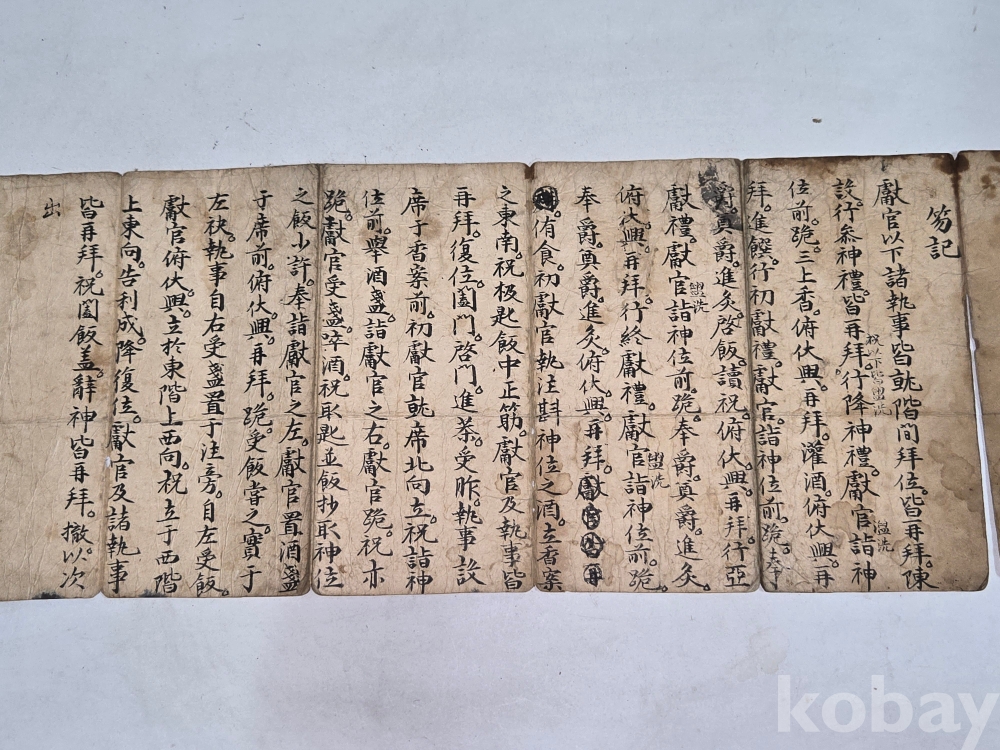 笏記
獻官以下諸執事皆就階間拜位皆再拜。陳
設。行參神禮。皆再拜。行降神禮。獻官詣神
祝以下皆盥洗
盥洗
位前。跪。三上香。俯伏興。再拜。灌酒。俯伏興。再
拜。進饌。行初獻禮。獻官詣神位前。跪。奉
爵。奠爵。進炙。啓飯。讀祝。俯伏。興。再拜。行亞
獻禮。獻官詣神位前。跪。奉爵。奠爵。進炙。
盥洗
俯伏。興。再拜。行終獻禮。獻官詣神位前。跪。
盥洗
奉爵。奠爵。進炙。俯伏。興。再拜。獻官皆再
侑食。初獻官執注斟神位之酒。立香案
之東南。祝极匙飯中正筯。獻官及執事皆
再拜。復位。闔門。啓門。進茶。受胙。執事設
席于香案前。初獻官就席北向立。祝詣神
位前。擧酒盞。詣獻官之右。獻官跪。祝亦
跪。獻官受盞。啐酒。祝取匙並飯抄取神位
之飯少許。奉詣獻官之左。獻官置酒盞
于席前。俯伏。興。再拜。跪。受飯嘗之。實于
左袂。執事自右受盞置于注旁。自左受飯。
獻官俯伏。興。立於東階上西向。祝立于西階
上東向。告利成。降復位。獻官及諸執事
皆再拜。祝闔飯盖。辭神皆再拜。撤以次
出
kobay